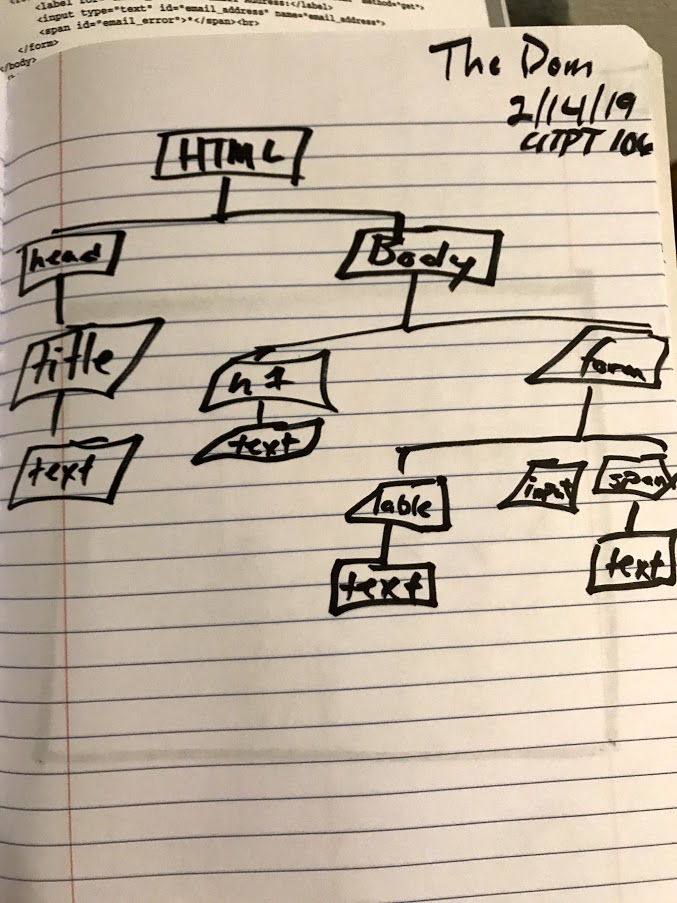 <label for= Address:</label> method="get">
<input type="text" id="email_address" name="email_address">
<span id="email_error">*</span><br>
</form>
</body>
The Dom
2/14/19
CITPT 106
HTML
head Body
title h1 form
text text
lable input span
text text